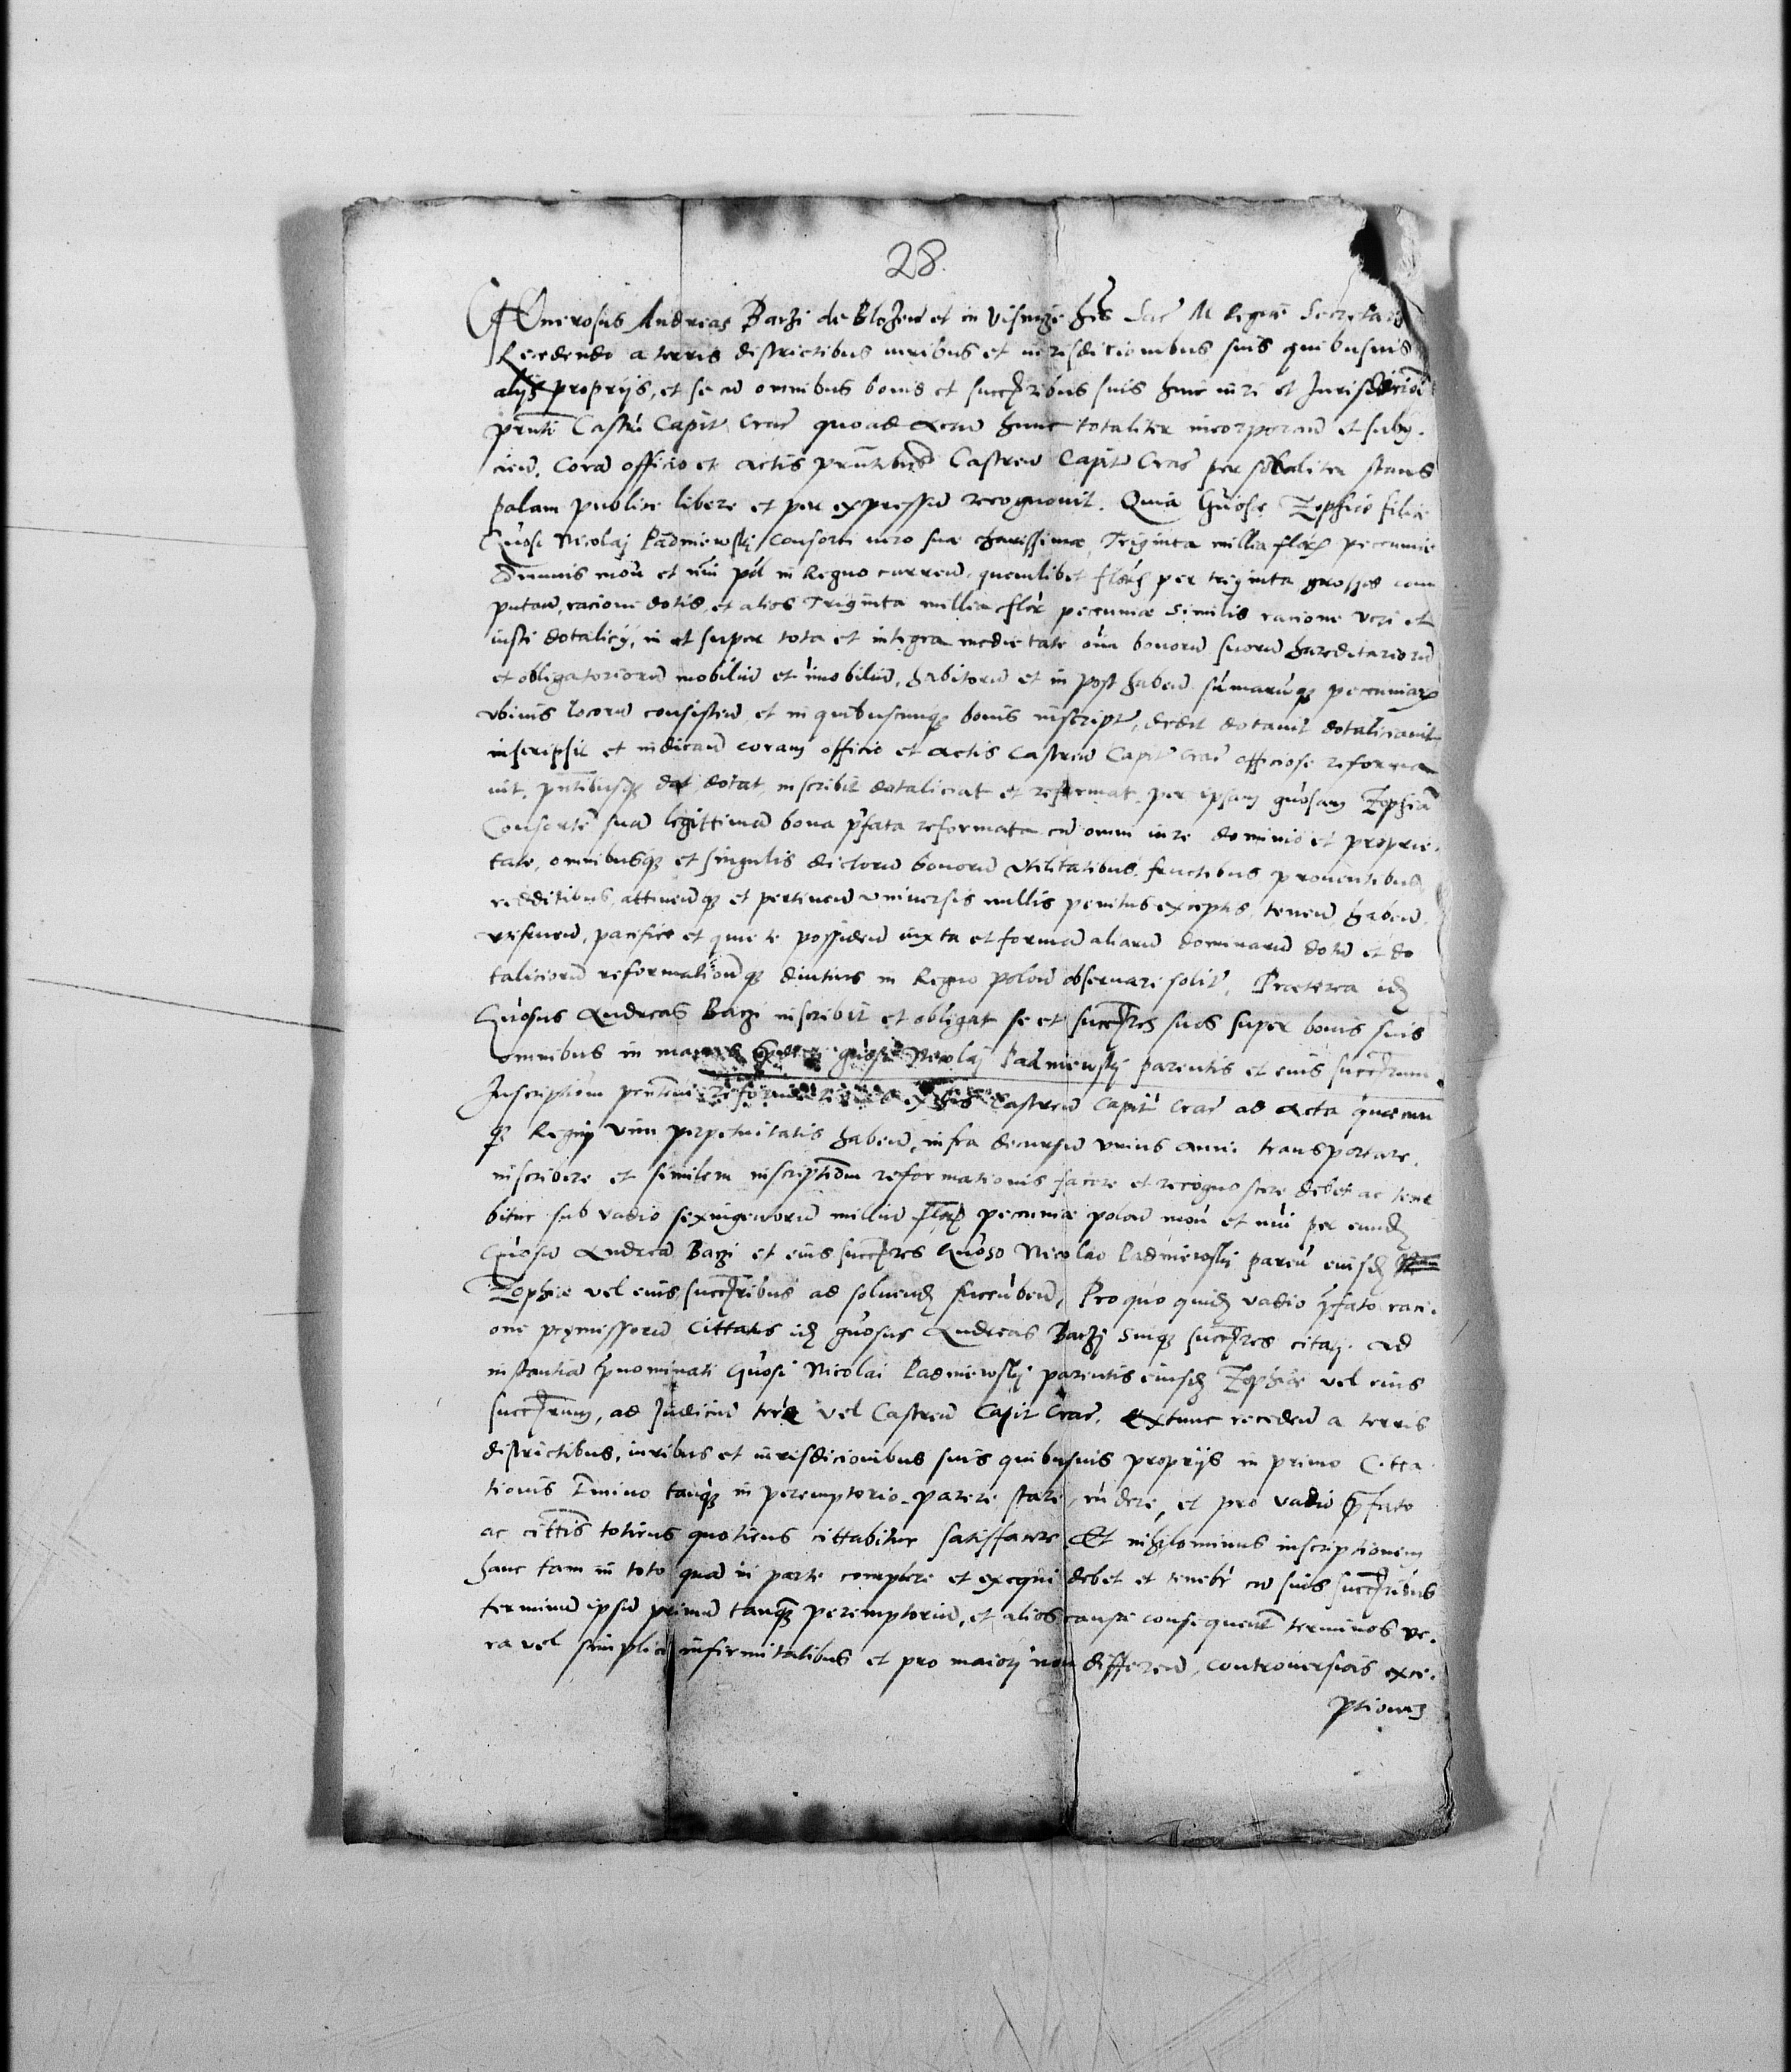 28.
Generosus Andreas Barzi de Blozew et in Visnize hrs Sac M Regiae Secretarius
Recedendo a terris districtibus iuribus et iurisdicionibus suis quibusuis
alijs proprijs, et se cu omnibus bonis et succribus suis huic iuri et Jurisdicioni
pruti Castri Capit Crac quoad actu hunc totaliter incorporan et subij.
cien. Cora officio et actis prutibus Castren Capit Crac personaliter stans
palam publice libere et per expressu recognouit. Quia Gnose Zophie filie
Gnosi Nicolaj Padniewskj consorti vero sue charissimae, Triginta millia flor pecuniae
Comunis mon et nui pol in Regno curren, quemlibet flor per triginta grosses com
putan, racione dotis, et alios Triginta millia flor pecuniae similis racione veri et
iusti dotalicij, in et super tota et integra medietate oim bonoru suoru haereditarioru
et obligatorioru mobiliu et imobiliu, habitoru et in post haben. sumaruq pecuniar
vbiuis locoru consisten, et in quibuscunq bonis inscript, dedit dotauit dotaliciauit
inscripsit et iudican coram officio et actis Castren Capit Crac officiose reforma
uit. prutibusq dat dotat inscribit dotaliciat et reformat. per ipsam gnosam Zophia
Consorte sua legittima bona pfata reformata cu omni iure dominio et proprie.
tate, omnibusq et singulis dictoru bonoru vtilitatibus. fructibus prouentibus,
redditibus, attinenq et pertinen vniuersis nullis penitus exceptis, tenen, haben.
vtifruen, pacifice et quiete possiden iuxta et forma aliaru dominaru dotu et do
talicioru reformationuq diutius in Regno polon obseruari solit. Praeterea id
Gnosus Andreas Barzi inscribit et obligat se et succres suos super bonis suis
omnibus in manus gnosi Nicolaj Padniewskj parentis et eius succrum.
Inscriptiom prutem reformationis ex actis Castren Capit Crac ad acta quecun
q Regnj vim perpetuitatis haben, infra decursu vnius anni. transportare.
inscribere et similem inscriptiom reformationis facere et recognoscere debet ac tene
bitur sub vadio sexingentoru milliu flor pecuniae polon mon et nui per eund
Gnosu Andrea Barzi et eius succres Gnoso Nicolao Padniewskj paren eiusd
Zophie vel eius succribus ad soluend succuben, Pro quo quid vadio pfato raci.
one premissoru Cittatus id gnosus Andreas Barzj suiq succres citatj. ad
instantia pnominati Gnosi Nicolai Padniewskj parentis eiusd Zophiae vel eius
succrum, ad Judiciu terre vel Castren Capit Crac. extunc receden a terris
districtibus, iuribus et iurisdicionibus suis quibusuis proprijs in primo Citta
tionis Tmino tanq in peremptorio parere stare, rn dere, et pro vadio pfato
ac cittis totiens quotiens cittabitur satisfacere. Et nihilominus inscriptionem
hanc tam in toto qua in parte complere et exequi debet et tenebr cu suis succribus
terminu ipsu primu tanq peremptoriu, et alios causae consequent terminos ve.
ra vel simplici infirmitatibus et pro maiorj non differen, controuersias exce.
ptiones